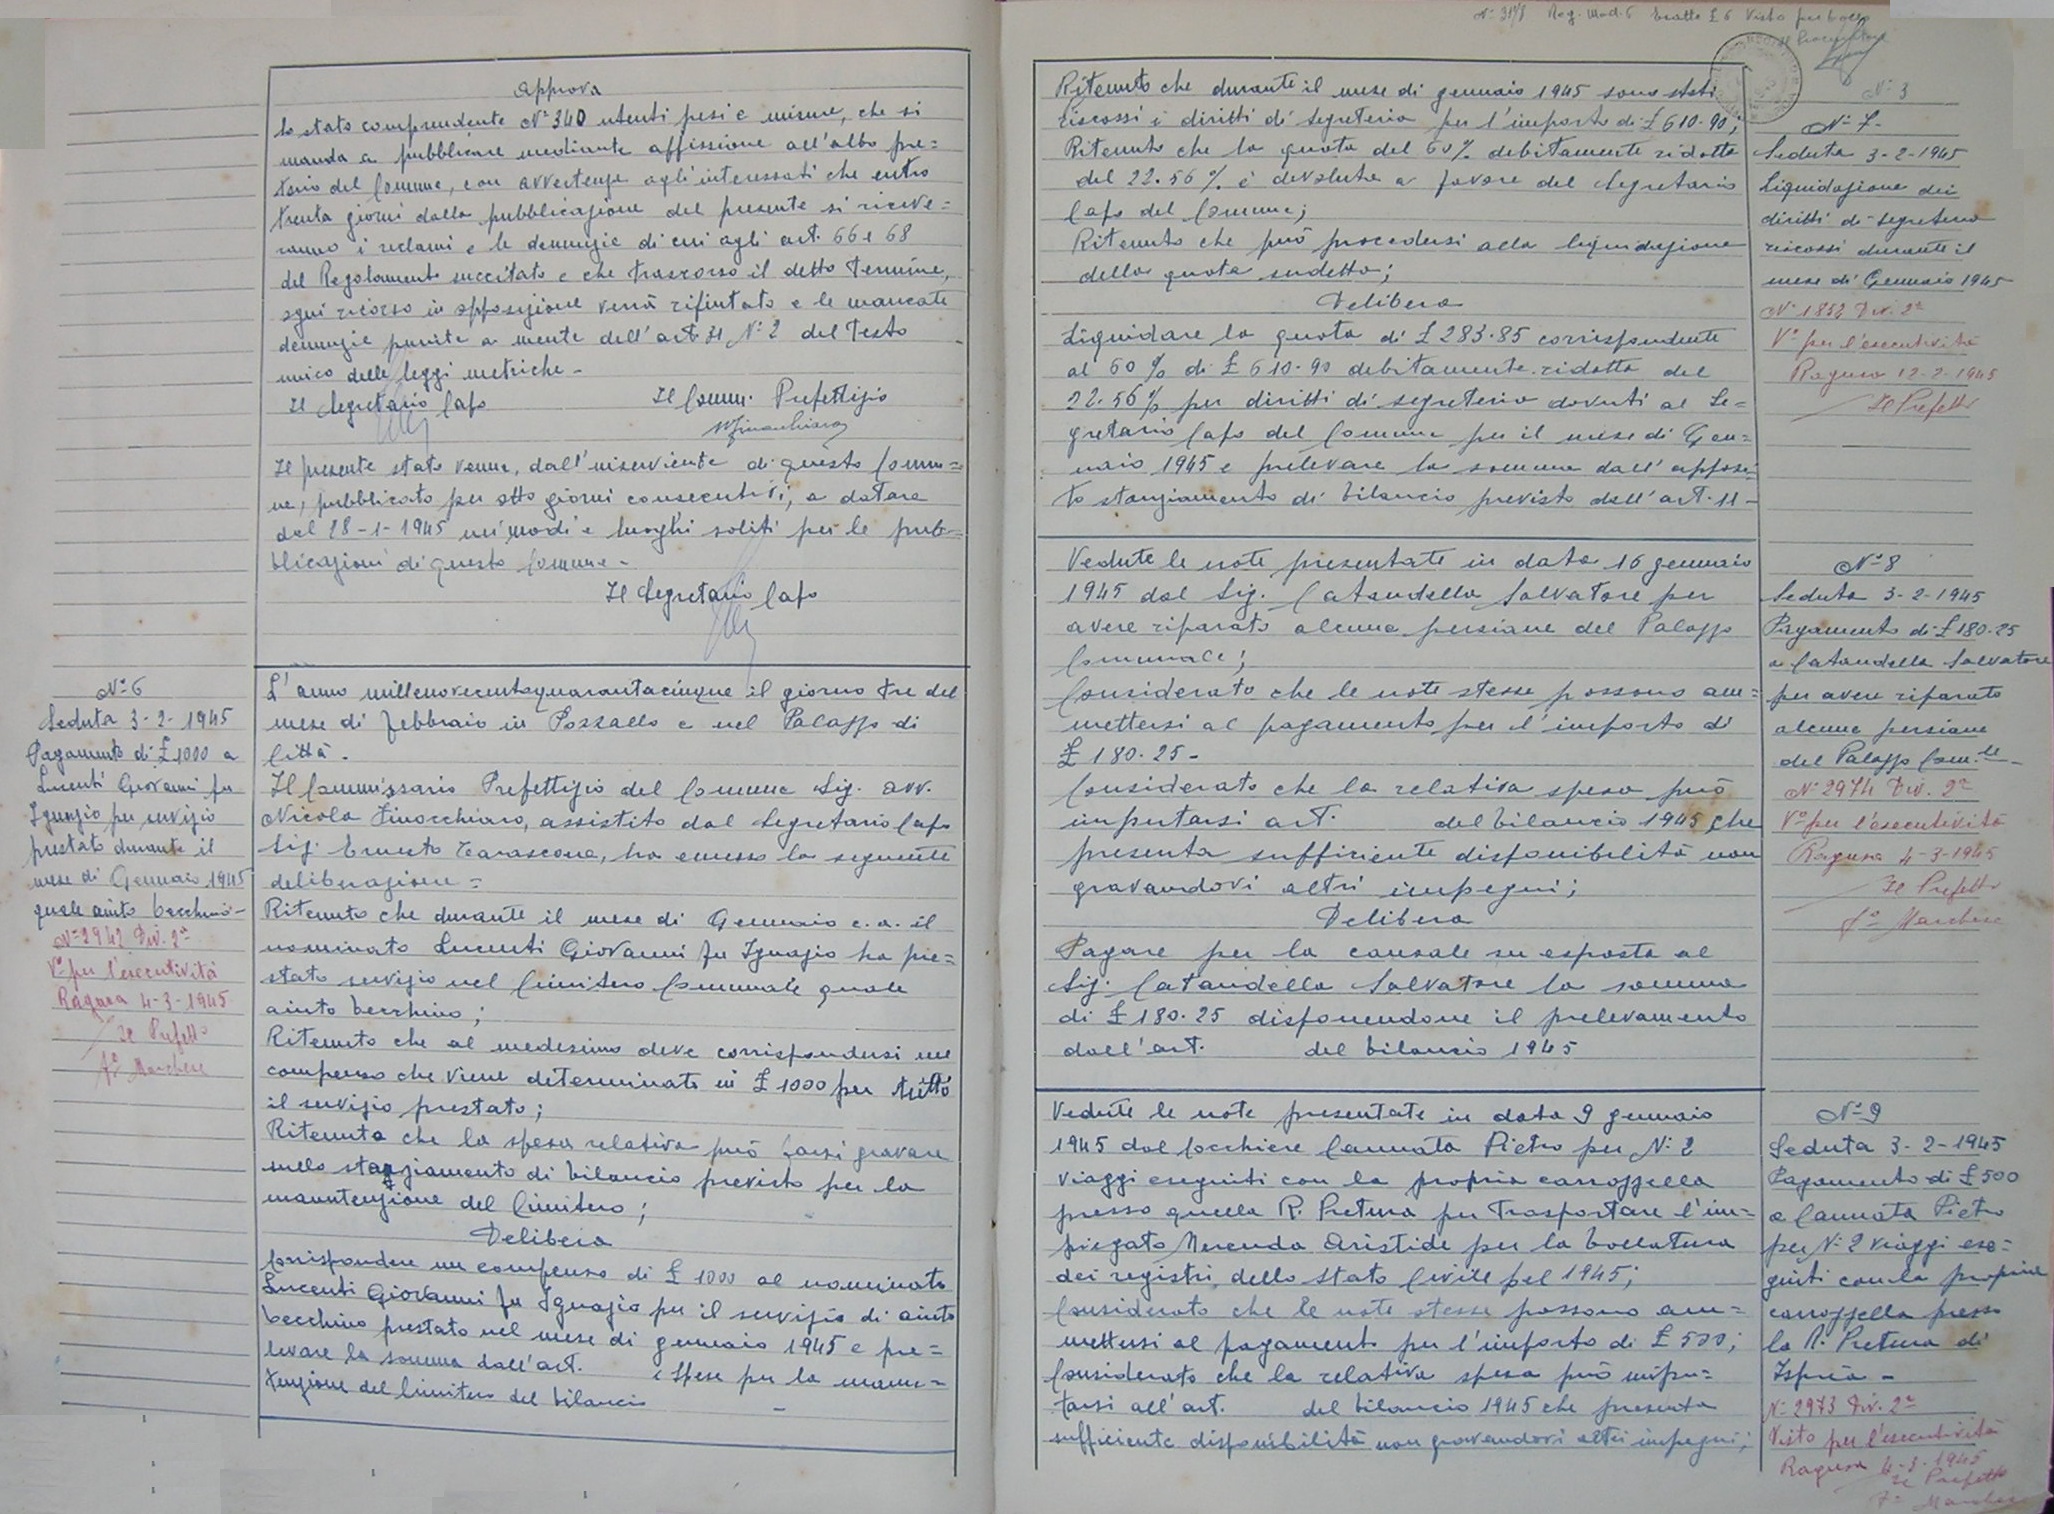 Approva
lo stato comprendente N° 340 utenti pesi e misure, che si
manda a pubblicare mediante affissione all'albo pre=
torio del Comune, con avvertenza agli interessati che entro
trenta giorni dalla pubblicazione del presente si riceve=
ranno i reclami e le denunzie di cui agli art. 66 e 68
del Regolamento succitato e che trascorso il detto termine,
ogni ricorso in opposizione verrà rifiutato e le mancate
denunzie punite a mente dell'art. 31 N° 2 del Testo
unico delle leggi metriche -
Il Segretario Capo Il Comm. Prefettizio
Il presente stato venne, dall'inserviente di questo Comu=
ne, pubblicato per otto giorni consecutivi, a datare
dal 28-1-1945 nei modi e luoghi soliti per le pub=
blicazioni di questo Comune -
Il Segretario Capo
N° 6
Seduta 3-2-1945
Pagamento di £ 1000 a
Lucenti Giovanni fu
Ignazio per servizio
prestato durante il
mese di Gennaio 1945
quale aiuto becchino -
N° 2942 Div. 2ª
V° per l'esecutività
Ragusa 4-3-1945
Il Prefetto
F° Marchese
L'anno millenovecentoquarantacinque il giorno tre del
mese di febbraio in Pozzallo e nel Palazzo di
Città -
Il Commissario Prefettizio del Comune Sig. avv.
Nicola Finocchiaro, assistito dal Segretario Capo
Sig. Ernesto Tarascone, ha emesso la seguente
deliberazione =
Ritenuto che durante il mese di Gennaio c.a. il
nominato Lucenti Giovanni fu Ignazio ha pre=
stato servizio nel Cimitero Comunale quale
aiuto becchino;
Ritenuto che al medesimo deve corrispondersi un
compenso che viene determinato in £ 1000 per tutto
il servizio prestato;
Ritenuta che la spesa relativa può farsi gravare
sullo stanziamento di bilancio previsto per la
manutenzione del Cimitero;
Delibera
Corrispondere un compenso di £ 1000 al nominato
Lucenti Giovanni fu Ignazio per il servizio di aiuto
becchino prestato nel mese di gennaio 1945 e pre=
levare la somma dall'art. Spese per la manu=
tenzione del Cimitero del bilancio -
N° 3178 Reg. Mod. 6 Esatte £ 6 Visto per bollo
Il Procuratore
N° 3
Ritenuto che durante il mese di gennaio 1945 sono stati
riscossi i diritti di segreteria per l'importo di £ 610.90;
Ritenuto che la quota del 60% debitamente ridotta
del 22.56% è devoluta a favore del Segretario
Capo del Comune;
Ritenuto che può procedersi alla liquidazione
della quota sudetta;
Delibera
Liquidare la quota di £ 283.85 corrispondente
al 60% di £ 610.90 debitamente ridotta del
22.56% per diritti di segreteria dovuti al Se=
gretario Capo del Comune per il mese di Gen=
naio 1945 e prelevare la somma dall'apposi=
to stanziamento di bilancio previsto dall'art. 11 -
N° 7-
Seduta 3-2-1945
Liquidazione dei
diritti di segreteria
riscossi durante il
mese di Gennaio 1945
N° 1852 Div. 2ª
V° per l'esecutività
Ragusa 12-2-1945
Il Prefetto
Vedute le note presentate in data 16 gennaio
1945 dal Sig. Catandella Salvatore per
avere riparato alcune persiane del Palazzo
Comunale;
Considerato che le note stesse possono am=
mettersi al pagamento per l'importo di
£ 180.25 -
Considerato che la relativa spesa può
imputarsi art. del bilancio 1945 che
presenta sufficiente disponibilità non
gravandovi altri impegni;
Delibera
Pagare per la causale su esposta al
Sig. Catandella Salvatore la somma
di £ 180.25 disponendone il prelevamento
dall'art. del bilancio 1945
N° 8
Seduta 3-2-1945
Pagamento di £ 180.25
a Catandella Salvatore
per avere riparato
alcune persiane
del Palazzo Com.le -
N° 2974 Div. 2ª
V° per l'esecutività
Ragusa 4-3-1945
Il Prefetto
F° Marchese
Vedute le note presentate in data 9 gennaio
1945 dal cocchiere Cannata Pietro per N° 2
viaggi eseguiti con la propria carrozzella
presso quella R. Pretura per trasportare l'im=
piegato Merenda Aristide per la bollatura
dei registri dello Stato Civile pel 1945;
Considerato che le note stesse possono am=
mettersi al pagamento per l'importo di £ 500;
Considerato che la relativa spesa può impu=
tarsi all'art. del bilancio 1945 che presenta
sufficiente disponibilità non gravandovi altri impegni;
N° 9
Seduta 3-2-1945
Pagamento di £ 500
a Cannata Pietro
per N° 2 viaggi ese=
guiti con la propria
carrozzella presso
la R. Pretura di
Ispica -
N° 2973 Div. 2ª
Visto per l'esecutività
Ragusa 4-3-1945
Il Prefetto
F° Marchese